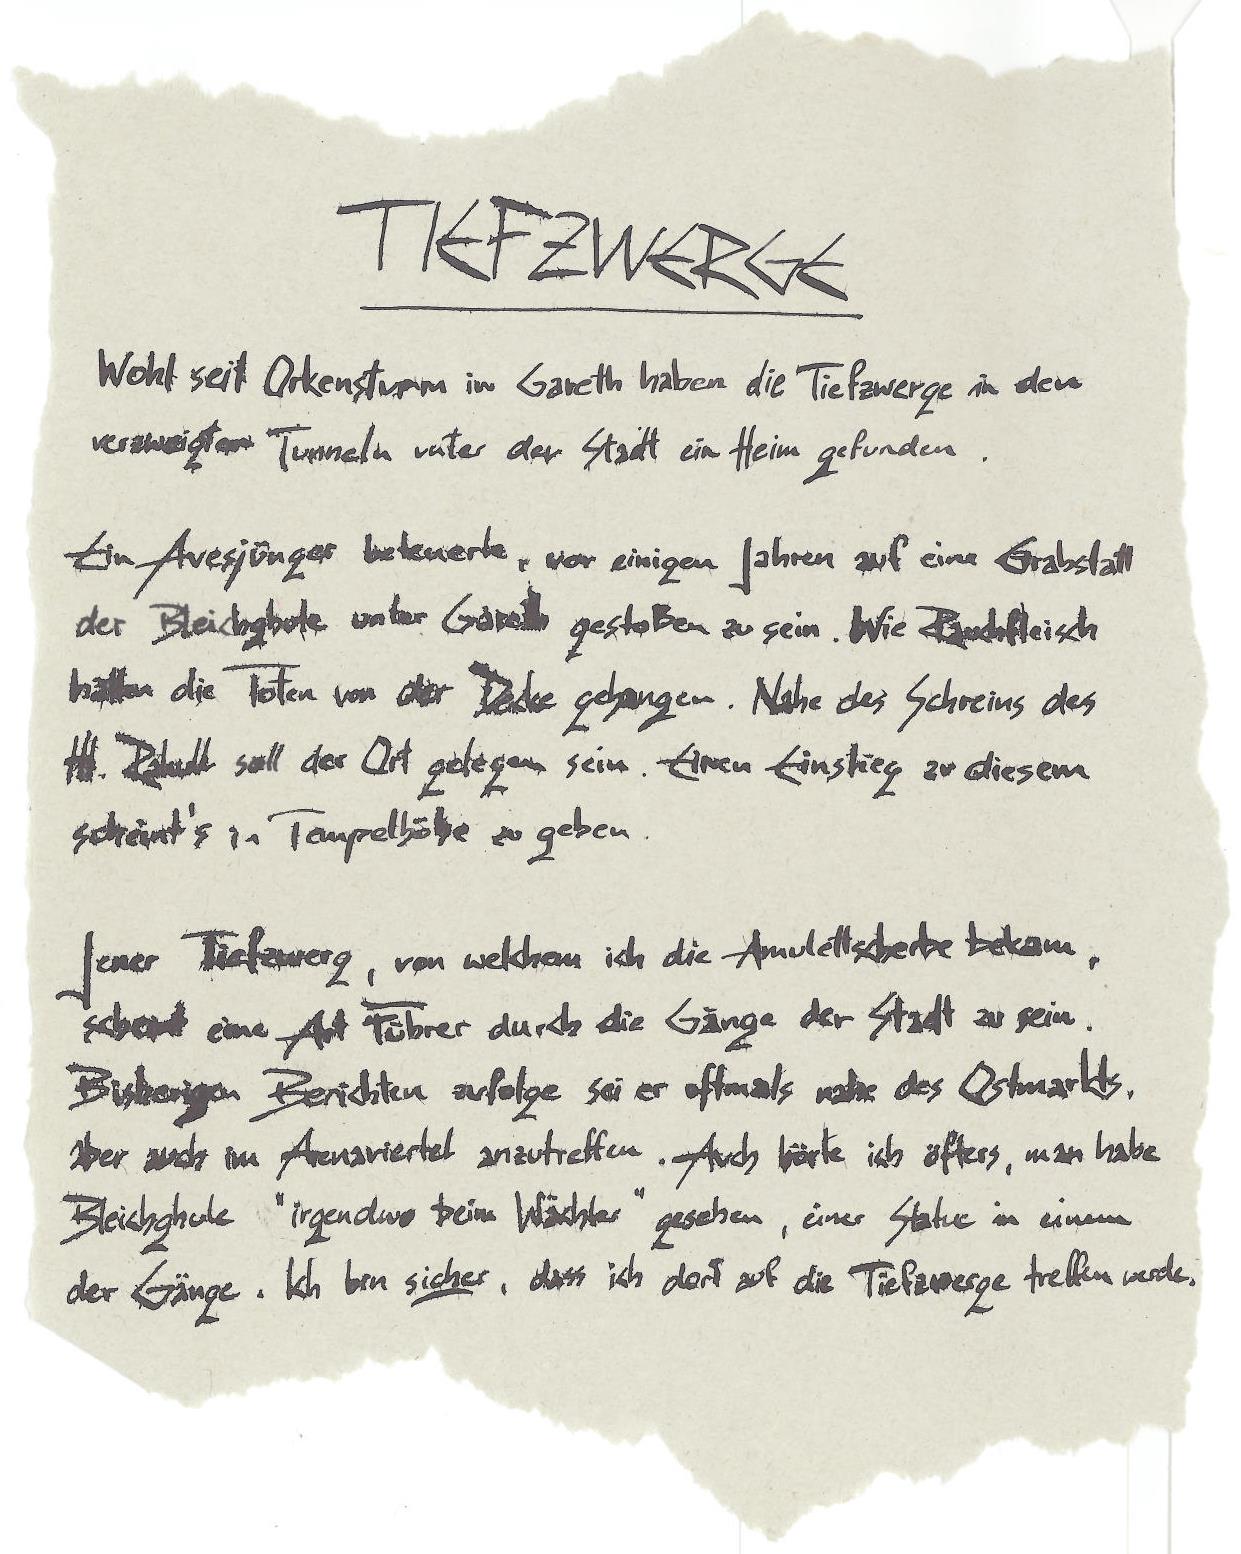 TIEFZWERGE
Wohl seit Orkensturm in Gareth haben die Tiefzwerge in den
verzweigten Tunneln unter der Stadt ein Heim gefunden.
Ein Avesjünger beteuerte, vor einigen Jahren auf eine Grabstatt
der Bleichghule unter Gareth gestoßen zu sein. Wie Rauchfleisch
hätten die Toten von der Decke gehangen. Nahe des Schreins des
Hl. soll der Ort gelegen sein. Einen Einstieg zu diesem
scheint's in Tempelhöhe zu geben.
Jener Tiefzwerg, von welchem ich die Amulettscherbe bekam,
scheint eine Art Führer durch die Gänge der Stadt zu sein.
Bisherigen Berichten zufolge sei er oftmals nahe des Ostmarkts,
aber auch im Arenaviertel anzutreffen. Auch hörte ich öfters, man habe
Bleichghule "irgendwo beim Wächter" gesehen, einer Statue in einem
der Gänge. Ich bin sicher, dass ich dort auf die Tiefzwerge treffen werde.